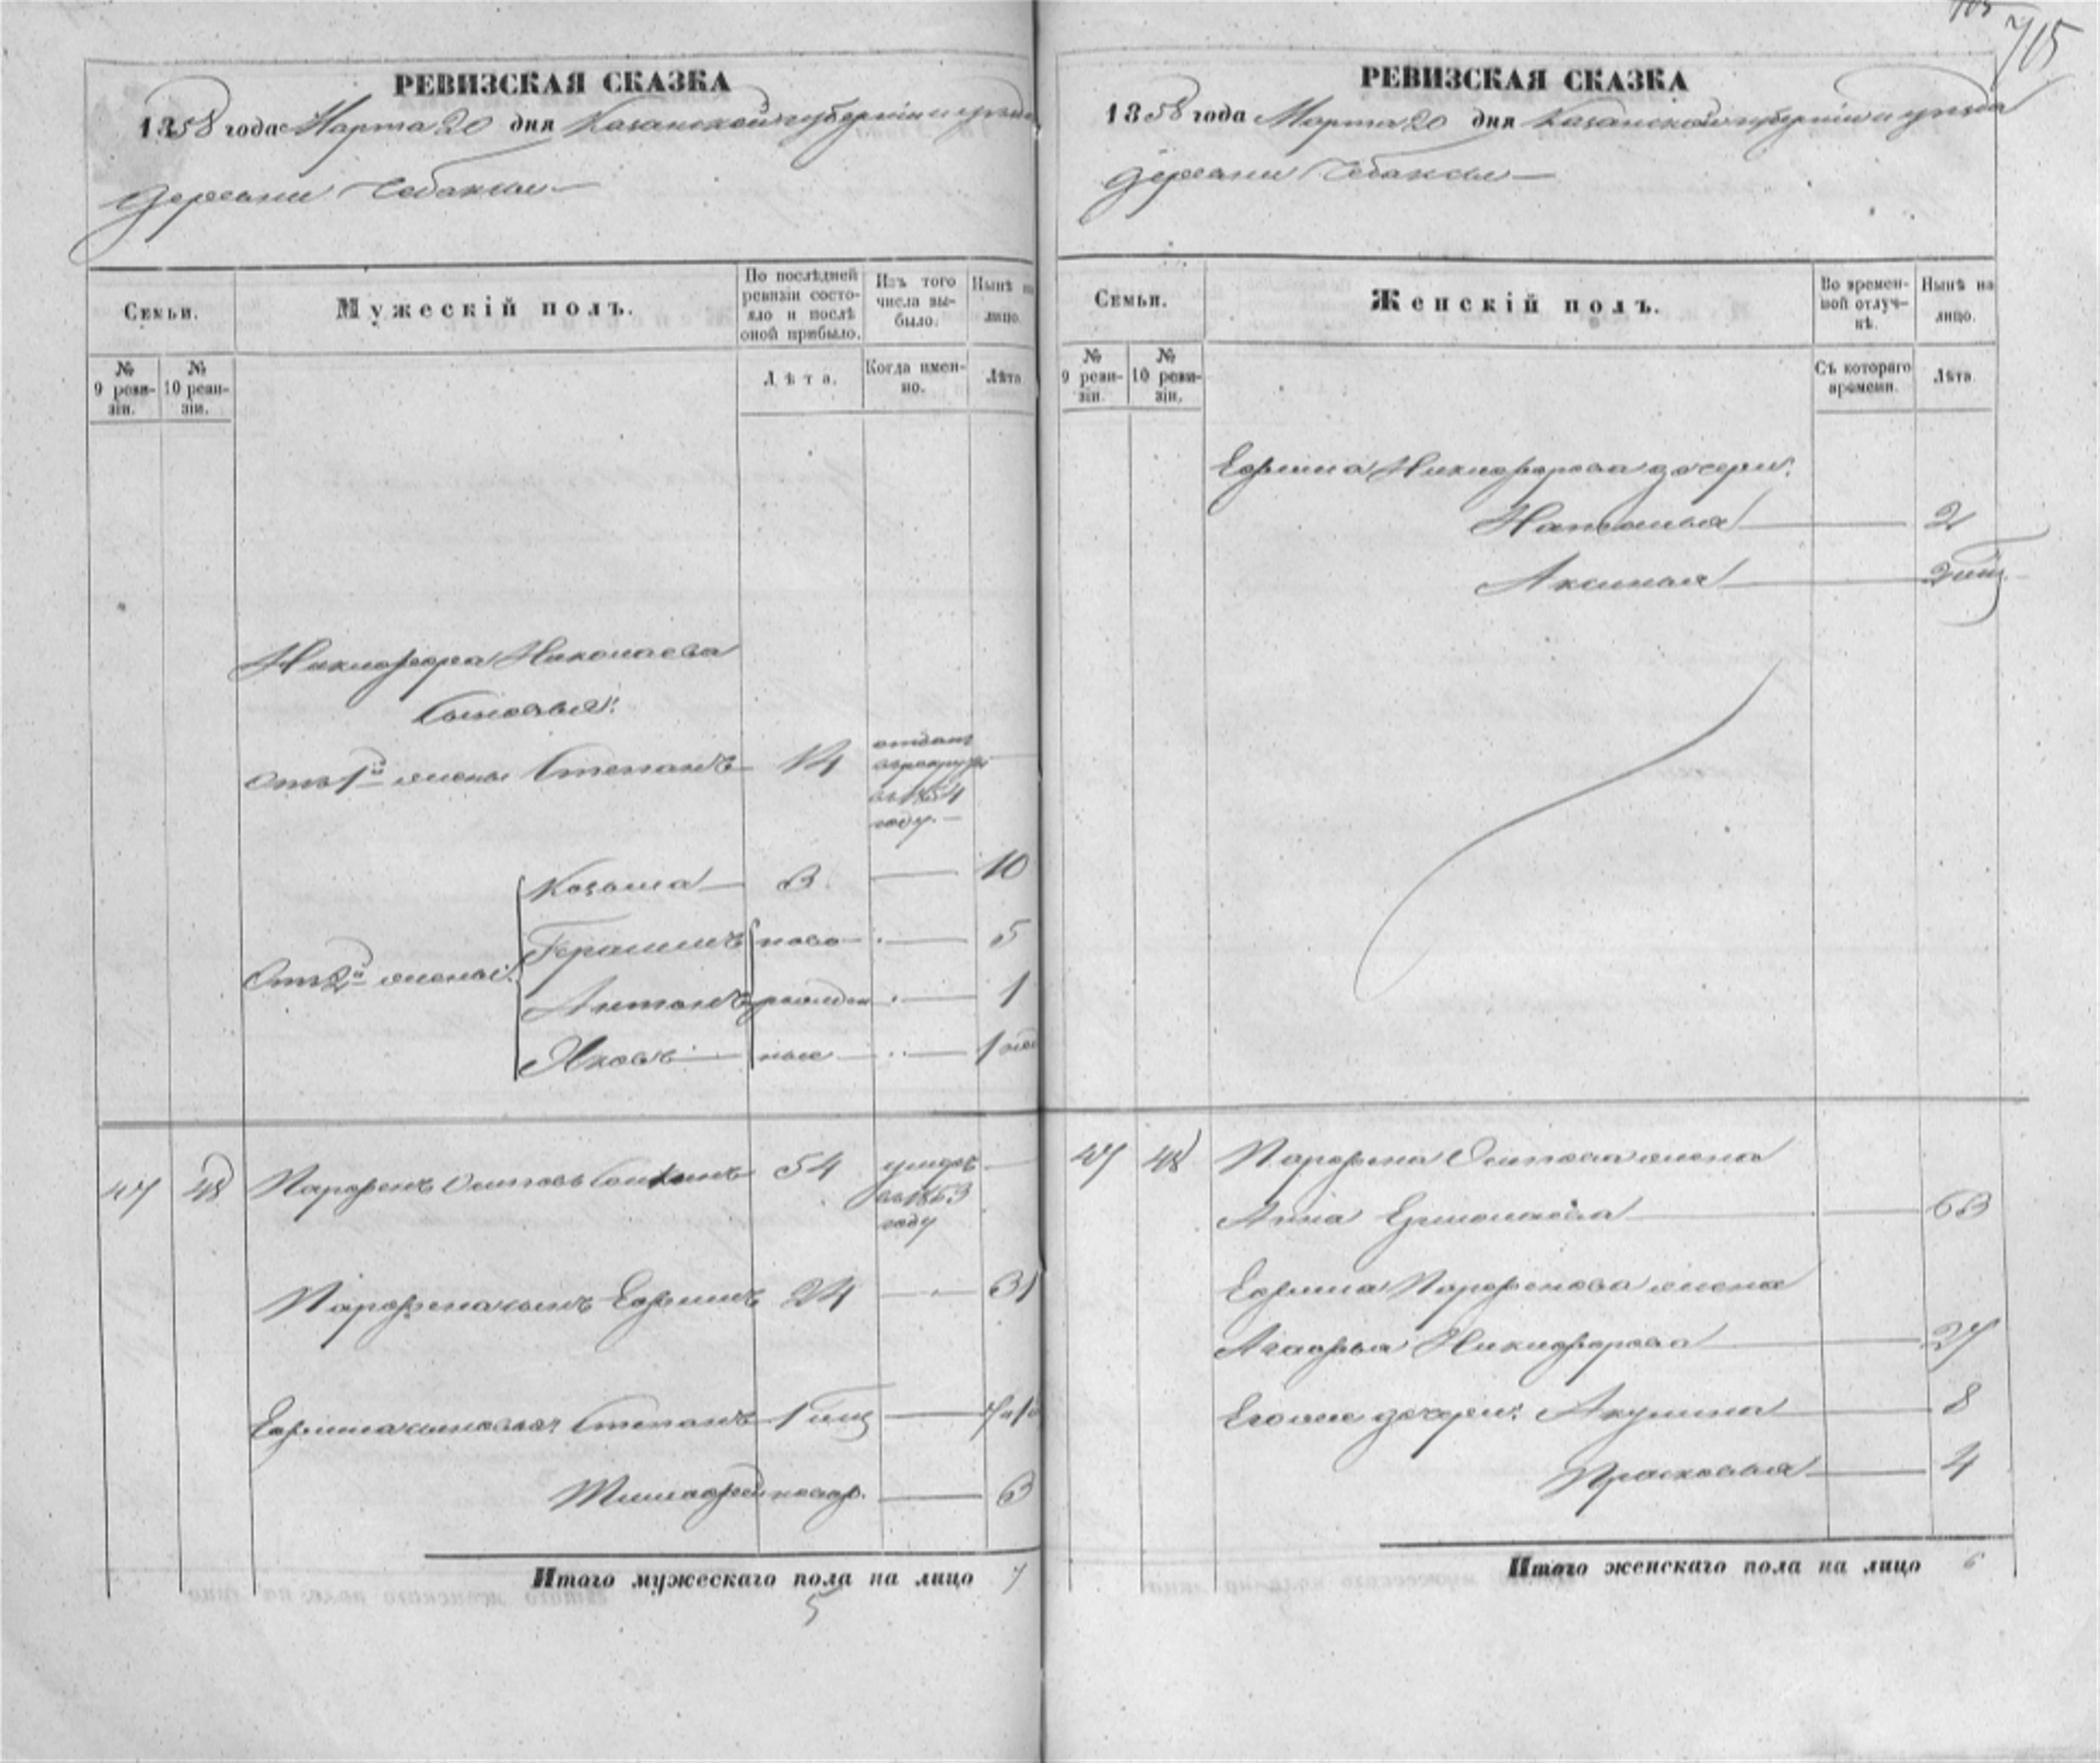 РЕВИЗСКАЯ СКАЗКА
1858 года Марта 20 дня Казанской губернии и уезда
деревни Чебаксы
Семьи.
Мужескій полъ.
По послѣдней ревизіи состояло и послѣ оной прибыло.
Изъ того числа выбыло.
Нынѣ на лицо.
№ 9 ревизіи.
№ 10 ревизіи.
Лѣта.
Когда именно.
Лѣта
Никифора Николаева
сыновья:
Отъ 1й жены Степанъ 14 отданъ въ рекруты въ 1854 году.
Козьма 3 10
Отъ 2й жены:
Герасимъ ново- 5
Антонъ рожден 1
Яковъ ные 1 нед
47 48 Парфенъ Осиповъ 54 умеръ въ 1853 году
Парфена сынъ Ефимъ 24 31
Ефима сыновья Степанъ 1 мѣц
Тимофей новор. 3
Итого мужескаго пола на лицо 7
5
715
РЕВИЗСКАЯ СКАЗКА
1858 года Марта 20 дня Казанской губерніи и уезда
деревни Чебаксы
Семьи.
Женскій полъ.
Во временной отлучкѣ.
Нынѣ на лицо.
№ 9 ревизіи.
№ 10 ревизіи.
Съ котораго времени.
Лѣта.
Ефима Никифорова дочери:
Наталья 2
Аксинья 2 мѣц
47 48 Парфена Осипова жена
Анна Ермолаева 63
Ефима Парфенова жена
Агафья Никифорова 27
Егоже дочери: Акулина 8
Прасковья 4
Итого женскаго пола на лицо 6